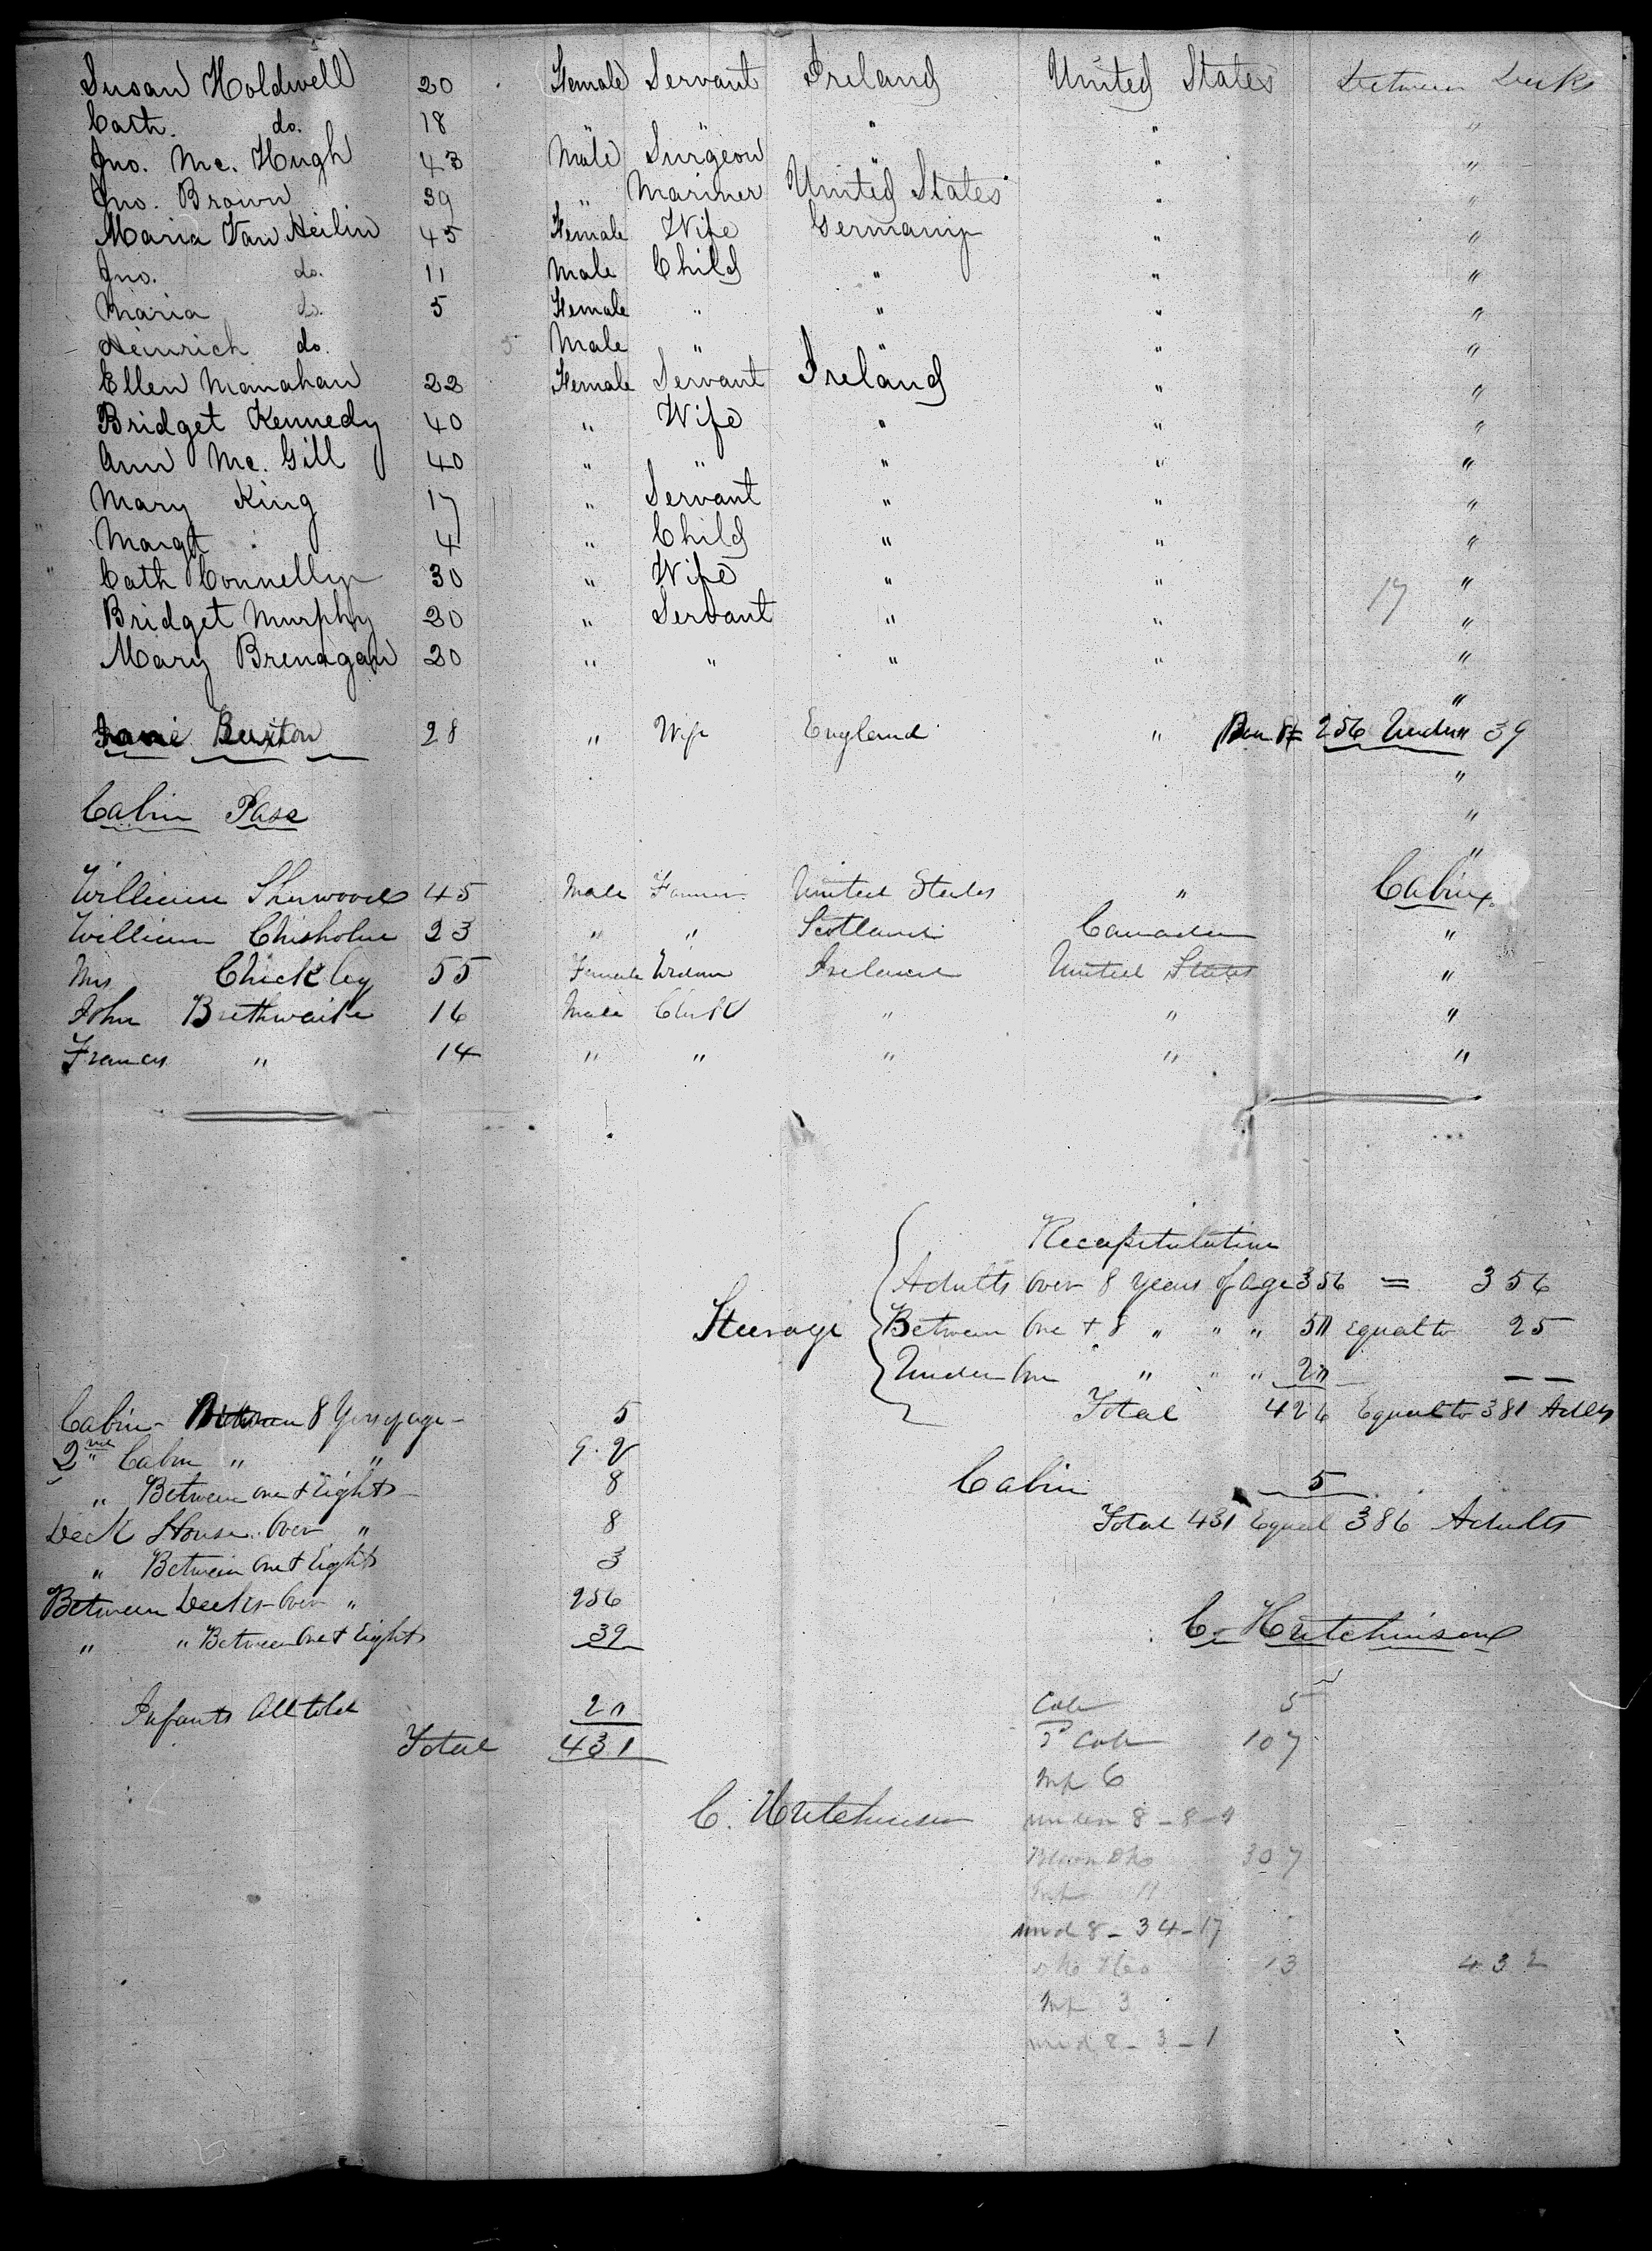 Susan Holdwell 20 Female Servant Ireland United States Between Decks
Cath. do. 18 " " " " "
Jno. Mc. Hugh 43 Male Surgeon " " "
Jno. Brown 39 " Mariner United States " "
Maria Van Heilin 45 Female Wife Germany " "
Jno. do. 11 Male Child " " "
Maria do. 5 Female " " " "
Heinrich do. 5 Male " " " "
Ellen Manahan 22 Female Servant Ireland " "
Bridget Kennedy 40 " Wife " " "
Ann Mc. Gill 40 " " " " "
Mary King 17 " Servant " " "
Margt 4 " Child " " "
Cath Connelly 30 " Wife " " "
17
Bridget Murphy 20 " Servant " " "
Mary Brenagan 20 " " " " "
"
Jane Buxton 28 " Wife England " 256 Under " 39
"
Cabin Pass "
"
William Sherwood 45 Male Farmer United States " Cabin
William Chisholm 23 " " Scotland Canada "
Mrs Chickley 55 Female Widow Ireland United States "
John Brethwaite 16 Male Clerk " " "
Francis " 14 " " " " "
Recapitulation
Adults Over 8 Years of age 356 = 356
Steerage Between One + 8 " " " 50 equal to 25
Under One " " " 20 — — —
Total 426 Equal to 381 Adlts
Cabin 8 Yers of age - 5
2nd Cabin " " 92
" Between one + Eight - 8
Cabin 5
Deck House. Over " 8
Total 431 Equal 386 Adults
" Between One + Eight 3
Between Decks Over " 256
" " Between One + Eight 39
C. Hutchinson
Infants All told 20
Total 431
Cab 5
2d Cab 107
Inf 6
C. Hutchinson
under 8 - 8 - 4
307
Inf 11
und 8 - 34 - 17
13 432
Inf 3
und 8 - 3 - 1